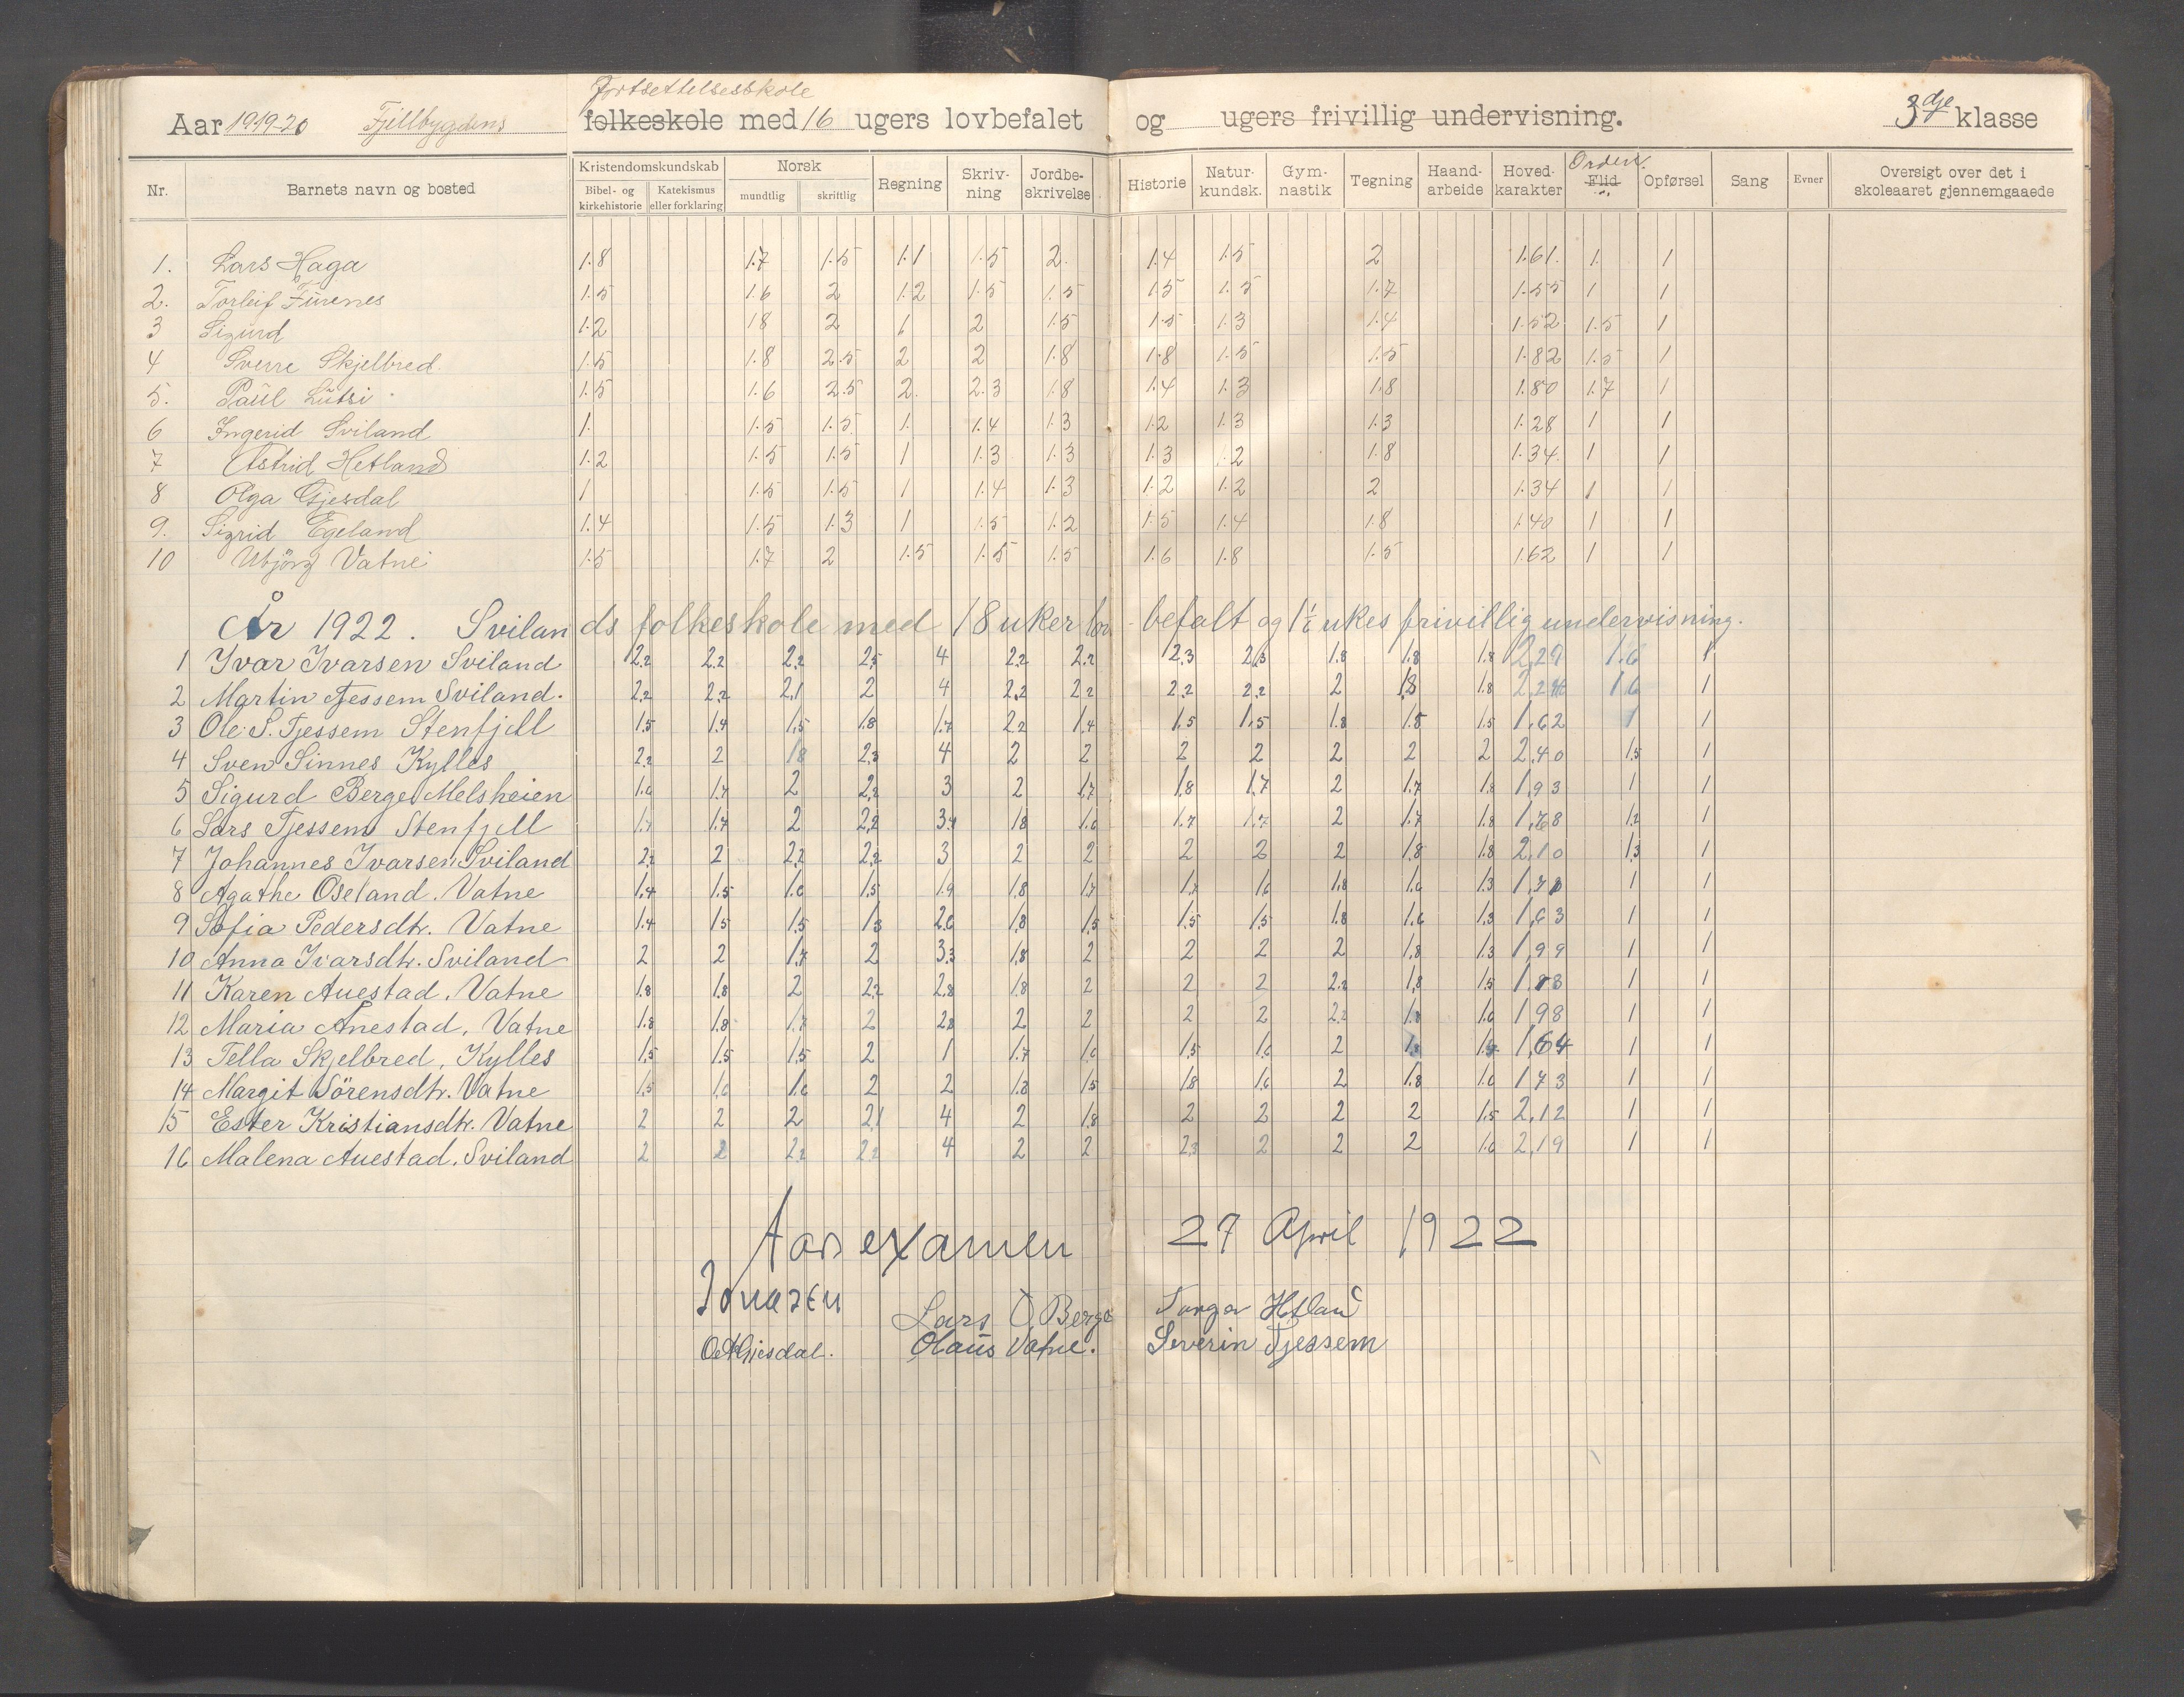 Fortsettelsesskole
Aar 1919-20 Fjellbygdens folkeskole med 16 ugers lovbefalet og ugers frivillig undervisning. 3dje klasse
Nr. Barnets navn og bosted Kristendomskundskab Bibel- og kirkehistorie Katekismus eller forklaring Norsk mundtlig skriftlig Regning Skriv-ning Jordbe-skrivelse Historie Natur-kundsk. Gym-nastik Tegning Haand-arbeide Hoved-karakter Orden. Flid Opførsel Sang Evner Oversigt over det i skoleaaret gjennemgaaede
1. Lars Haga 1.8 1.7 1.5 1.1 1.5 2. 1.4 1.5 2 1.61. 1. 1
2. Torleif Furenes 1.5 1.6 2 1.2 1.5 1.5 1.5 1.5 1.7 1.55 1 1
3 Sigurd 1.2 1.8 2 1 2 1.5 1.5 1.3 1.4 1.52 1.5 1
4 Sverre Skjelbred. 1.5 1.8 2.5 2 2 1.8 1.8 1.5 1.5 1.82 1.5 1
5. Paul Lutsi 1.5 1.6 2.5 2. 2.3 1.8 1.4 1.3 1.8 1.80 1.7 1
6 Ingerid Sviland 1. 1.5 1.5 1. 1.4 1.3 1.2 1.3 1.3 1.28 1 1
7 Astrid Hetland 1.2 1.5 1.5 1 1.3 1.3 1.3 1.2 1.8 1.34. 1 1
8 Olga Gjesdal 1 1.5 1.5 1 1.4 1.3 1.2 1.2 2 1.34 1 1
9. Sigrid Egeland 1.4 1.5 1.3 1 1.5 1.2 1.5 1.4 1.8 1.40 1 1
10 Vatne 1.5 1.7 2 1.5 1.5 1.5 1.6 1.8 1.5 1.62 1 1
År 1922. Svilands folkeskole med 18 uker lovbefalt og 1½ ukes frivillig undervisning.
1 Ivar Ivarsen Sviland 2,2 2,2 2,2 2,5 4 2,2 2,2 2,3 2,3 1.8 1.8 1.8 2,29 1.6 1
2 Martin Tjessem Sviland. 2,2 2,2 2,1 2 4 2,2 2,2 2,2 2,2 2 1,8 1.8 1.6 1
3 Ole S. Tjessem Stenfjell 1.5 1.4 1,5 1.8 1.7 2,2 1,4 1,5 1,5 1.8 1.5 1.5 1,62 1 1
4 Sven Sinnes Kylles 2,2 2 1.8 2,3 4 2 2 2 2 2 2 2 2,40 1,5 1
5 Sigurd Berge Melsheien 1.6 1.7 2 2,2 3 2 1,7 1,8 1,7 2 1.7 1.8 1,93 1 1
6 Lars Tjessem Stenfjell 1.7 1.7 2 2,2 3,4 1.8 1.6 1.7 1.7 2 1.7 1.8 1,78 1,2 1
7 Johannes Ivarsen Sviland 2,2 2 2,2 2,2 3 2 2 2 2 2 1,8 1.8 2,10 1,3 1
8 Agathe Oseland. Vatne 1.4 1.5 1.6 1.5 1.9 1.8 1.7 1.7 1.6 1.8 1.6 1.3 1 1
9 Sofia Pedersdtr. Vatne 1.4 1.5 1,5 1.3 2,6 1,8 1,5 1.5 1,5 1.8 1.6 1.3 1,63 1 1
10 Anna Ivarsdtr. Sviland 2 2 1,7 2 3,3 1,8 2 2 2 2 1,8 1.3 1,99 1 1
11 Karen Auestad. Vatne 1.8 1.8 2 2,2 2,8 1.8 2 2 2 2,2 1,8 1.5 1 1
12 Maria Auestad. Vatne 1.8 1,8 1.7 2 2,8 2 2 2 2 2,2 1,8 1.6 1,98 1 1
13 Tella Skjelbred, Kylles 1,5 1.5 1.5 2 1 1.7 1.6 1,5 1.6 2 1,64 1 1
14 Margit Sörensdtr. Vatne 1,5 1,6 1.6 2 2 1.8 1.5 1.8 1.6 2 1.8 1.6 1,73 1 1
15 Ester Kristiansdtr. Vatne 2 2 2 2,1 4 2 1.8 2 2 2 2 1.5 2,12 1 1
16 Malena Auestad. Sviland 2 2 2,2 2,2 4 2 2 2,3 2 2 2 1.6 2,19 1 1
Aarsexamen 27 April 1922
Jonasen Lars O. Berge Torger Hetland
Gjesdal. Olaus Vatne. Severin Tjessem